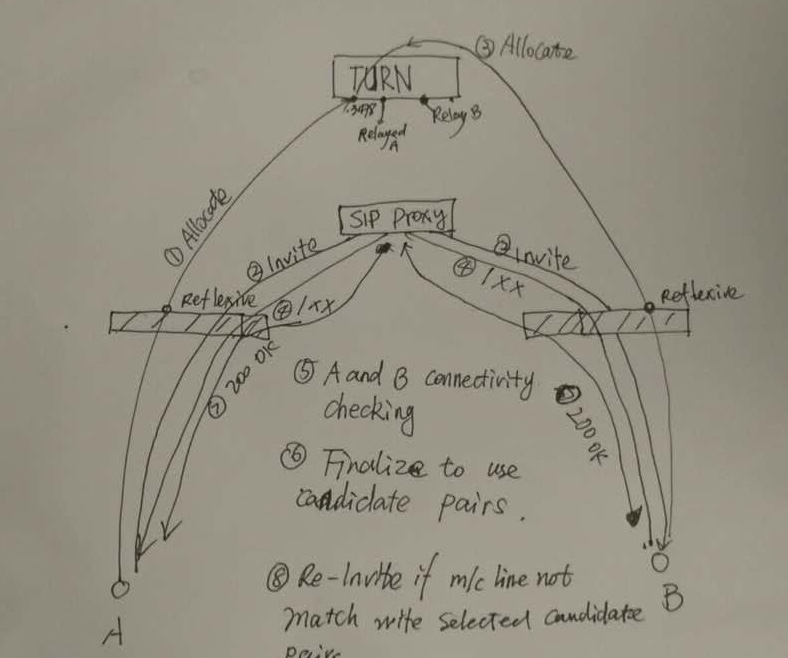 ③ Allocate
TURN
:3478
Relayed
A
Relay B
① Allocate
SIP Proxy
② Invite
② Invite
④ 1xx
④ 1xx
Reflexive
Reflexive
⑦ 200 OK
200 OK
⑤ A and B connectivity
checking
⑥ Finalize to use
candidate pairs.
⑧ Re-Invite if m/c line not
match wite selected candidate
pairs
A
B